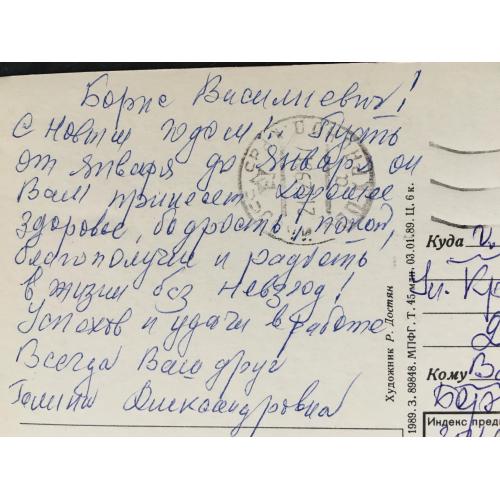 Борис Василиевич!
С Новым годом! Пусть
от января до января он
Вам принесет хорошее
здоровье, бодрость, покой,
благополучия и радость
в жизни без невзгод!
Успехов и удачи в работе
Всегда Ваш друг
Галина Александровна
Художник Р. Достян
1989. З. 89848. МПФГ. Т. 45 млн. 03.01.89. Ц. 6 к.
Куда
ул.
Кому
Индекс пред